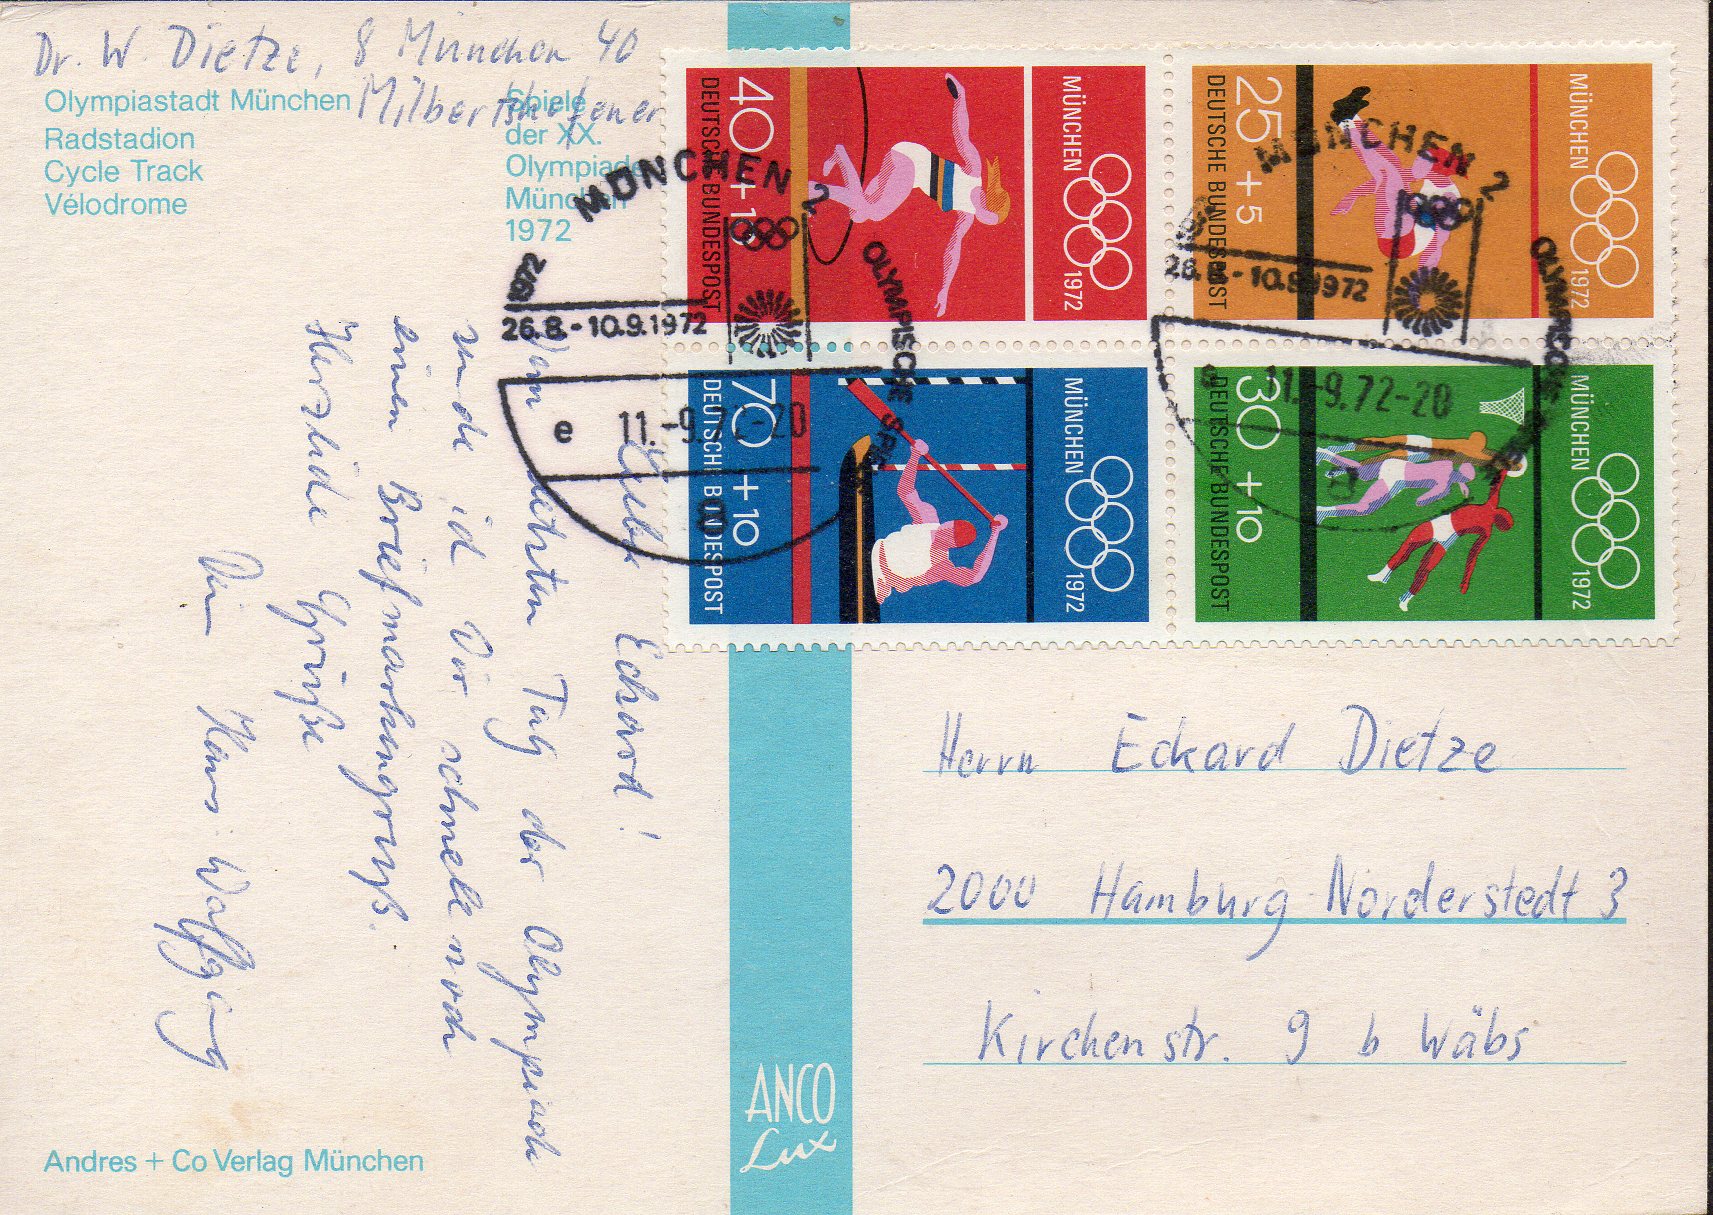 Dr. W. Dietze, 8 München 40
Milbertshofener
Olympiastadt München
Radstadion
Cycle Track
Vélodrome
Spiele
der XX.
Olympiade
München
1972
Lieber Eckard!
Vom letzten Tag der Olympiade
sende ich Dir schnell noch
einen Briefmarkengruß.
Herzliche Grüße
Dein Hans Wolfgang
Andres + Co Verlag München
ANCO
Lux
40
DEUTSCHE BUNDESPOST
MÜNCHEN
1972
25 + 5
DEUTSCHE BUNDESPOST
MÜNCHEN
1972
70 + 10
DEUTSCHE BUNDESPOST
MÜNCHEN
1972
30 + 10
DEUTSCHE BUNDESPOST
MÜNCHEN
1972
MÜNCHEN 2
OLYMPISCHE
1972
26.8.-10.9.1972
e 11.-9.72-20
a
MÜNCHEN 2
OLYMPISCHE
26.8.-10.9.1972
11.-9.72-20
a
Herrn Eckard Dietze
2000 Hamburg-Norderstedt 3
Kirchenstr. 9 b Wäbs